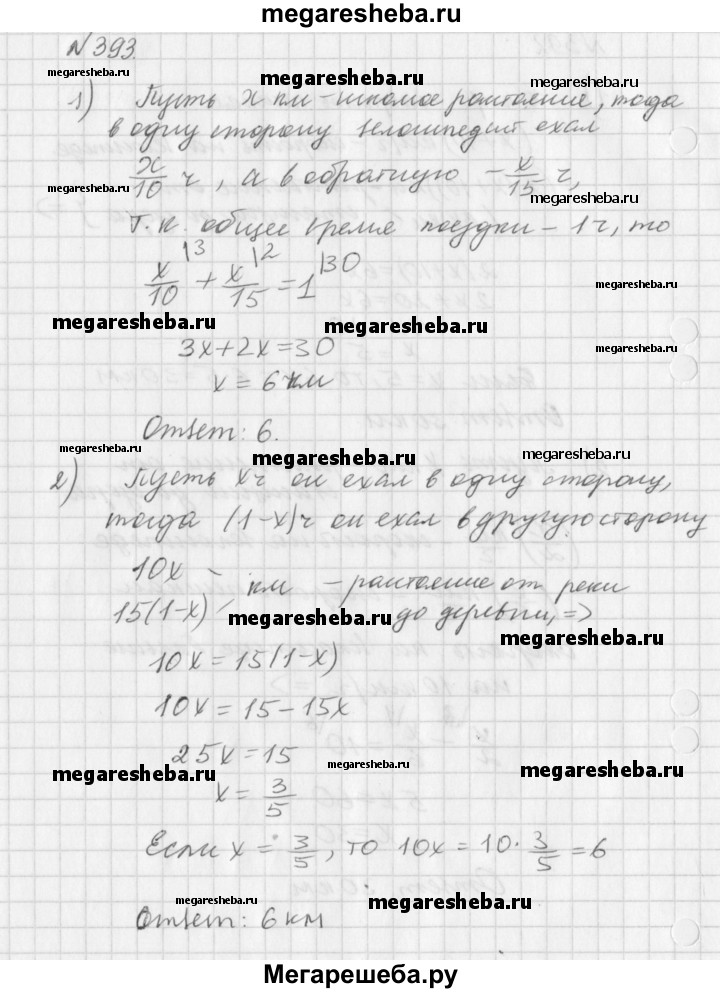 megaresheba.ru
№393.
megaresheba.ru megaresheba.ru
1) Пусть x км – искомое расстояние, тогда
в одну сторону велосипедист ехал
x/10 ч, а в обратную – x/15 ч,
megaresheba.ru megaresheba.ru
т.к. общее время поездки – 1ч, то
x/10 |3 + x/15 |2 = 1 |30
megaresheba.ru megaresheba.ru
3x+2x=30
megaresheba.ru
x = 6 км
Ответ: 6.
megaresheba.ru megaresheba.ru
2) Пусть xч он ехал в одну сторону,
тогда (1-x)ч он ехал в другую сторону
10x
км – расстояние от реки
15(1-x)
megaresheba.ru до деревни, =>
megaresheba.ru
10x = 15(1-x)
10x = 15-15x
25x = 15
megaresheba.ru megaresheba.ru
x = 3/5
Если x = 3/5, то 10x = 10·3/5 = 6
megaresheba.ru megaresheba.ru
Ответ: 6 км
Мегарешеба.ру